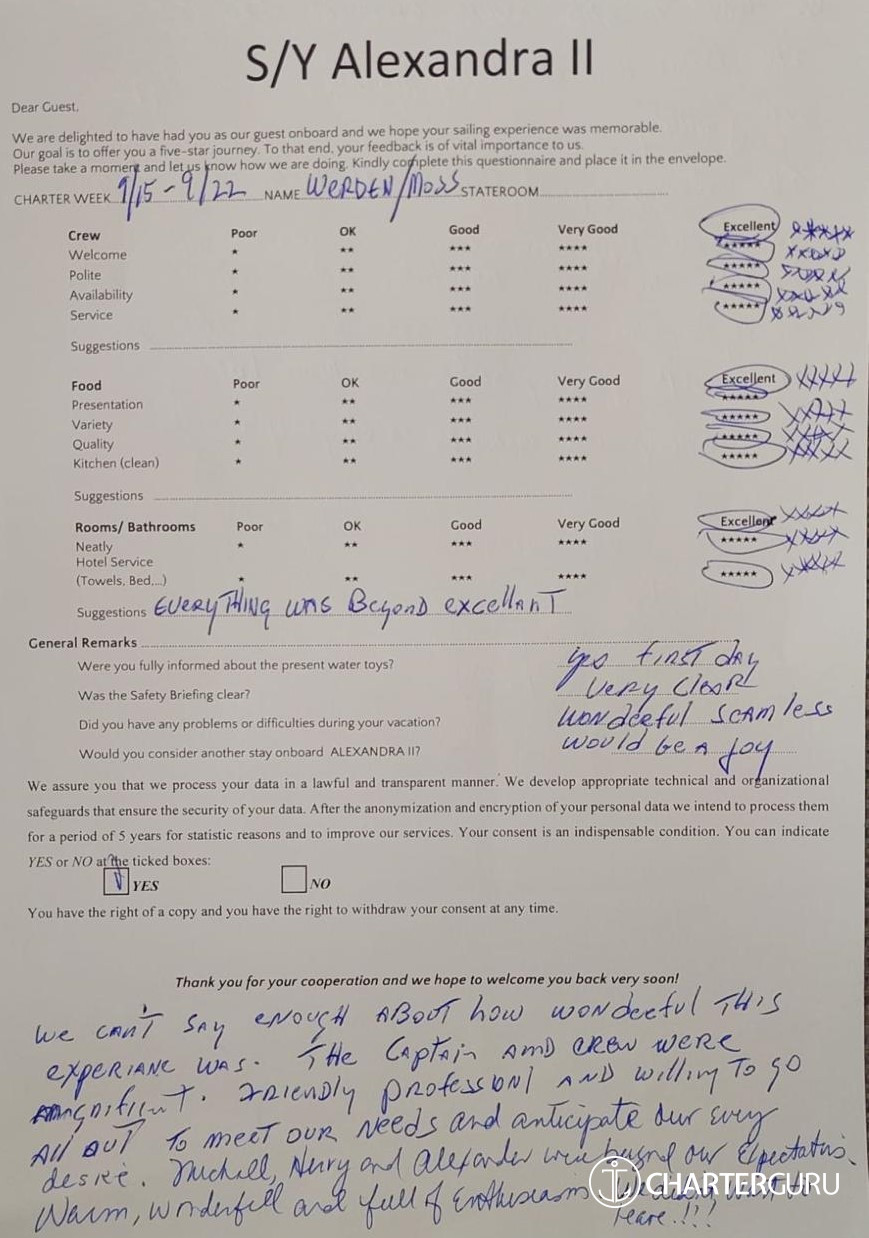 S/Y Alexandra II
Dear Guest,
We are delighted to have had you as our guest onboard and we hope your sailing experience was memorable.
Our goal is to offer you a five-star journey. To that end, your feedback is of vital importance to us.
Please take a moment and let us know how we are doing. Kindly complete this questionnaire and place it in the envelope.
CHARTER WEEK 9/15-9/22 NAME WERDEN/MOSS STATEROOM
Crew Poor OK Good Very Good Excellent xxxxx
Welcome * ** *** **** *****
Polite * ** *** **** *****
Availability * ** *** **** *****
Service * ** *** **** *****
Suggestions
Food Poor OK Good Very Good Excellent xxxxx
Presentation * ** *** **** *****
Variety * ** *** **** *****
Quality * ** *** **** *****
Kitchen (clean) * ** *** **** *****
Suggestions
Rooms/ Bathrooms Poor OK Good Very Good Excellent xxxxx
Neatly * ** *** **** *****
Hotel Service
(Towels, Bed,...) * ** *** **** *****
Suggestions EVERYTHING WAS Beyond excellANT
General Remarks
Were you fully informed about the present water toys? yes FIRST dAy
Was the Safety Briefing clear? Very Clear
Did you have any problems or difficulties during your vacation? WONdeeful SEAMless
Would you consider another stay onboard ALEXANDRA II? would be A Joy
We assure you that we process your data in a lawful and transparent manner. We develop appropriate technical and organizational
safeguards that ensure the security of your data. After the anonymization and encryption of your personal data we intend to process them
for a period of 5 years for statistic reasons and to improve our services. Your consent is an indispensable condition. You can indicate
YES or NO at the ticked boxes:
YES NO
You have the right of a copy and you have the right to withdraw your consent at any time.
Thank you for your cooperation and we hope to welcome you back very soon!
We can't SAy eNOUgH ABOUT how wondeeful THIS
experiANC WAS. THE CApTAin AMD CREW WERE
FriENDly professionl AND willing To go
All OUT To MEET OUR Needs and anticipate our every
desire. Henry and Alexander were our Expectatis.
Warm, wonderfull and full of Enthusiasm to
leave.!!!
CHARTERGURU